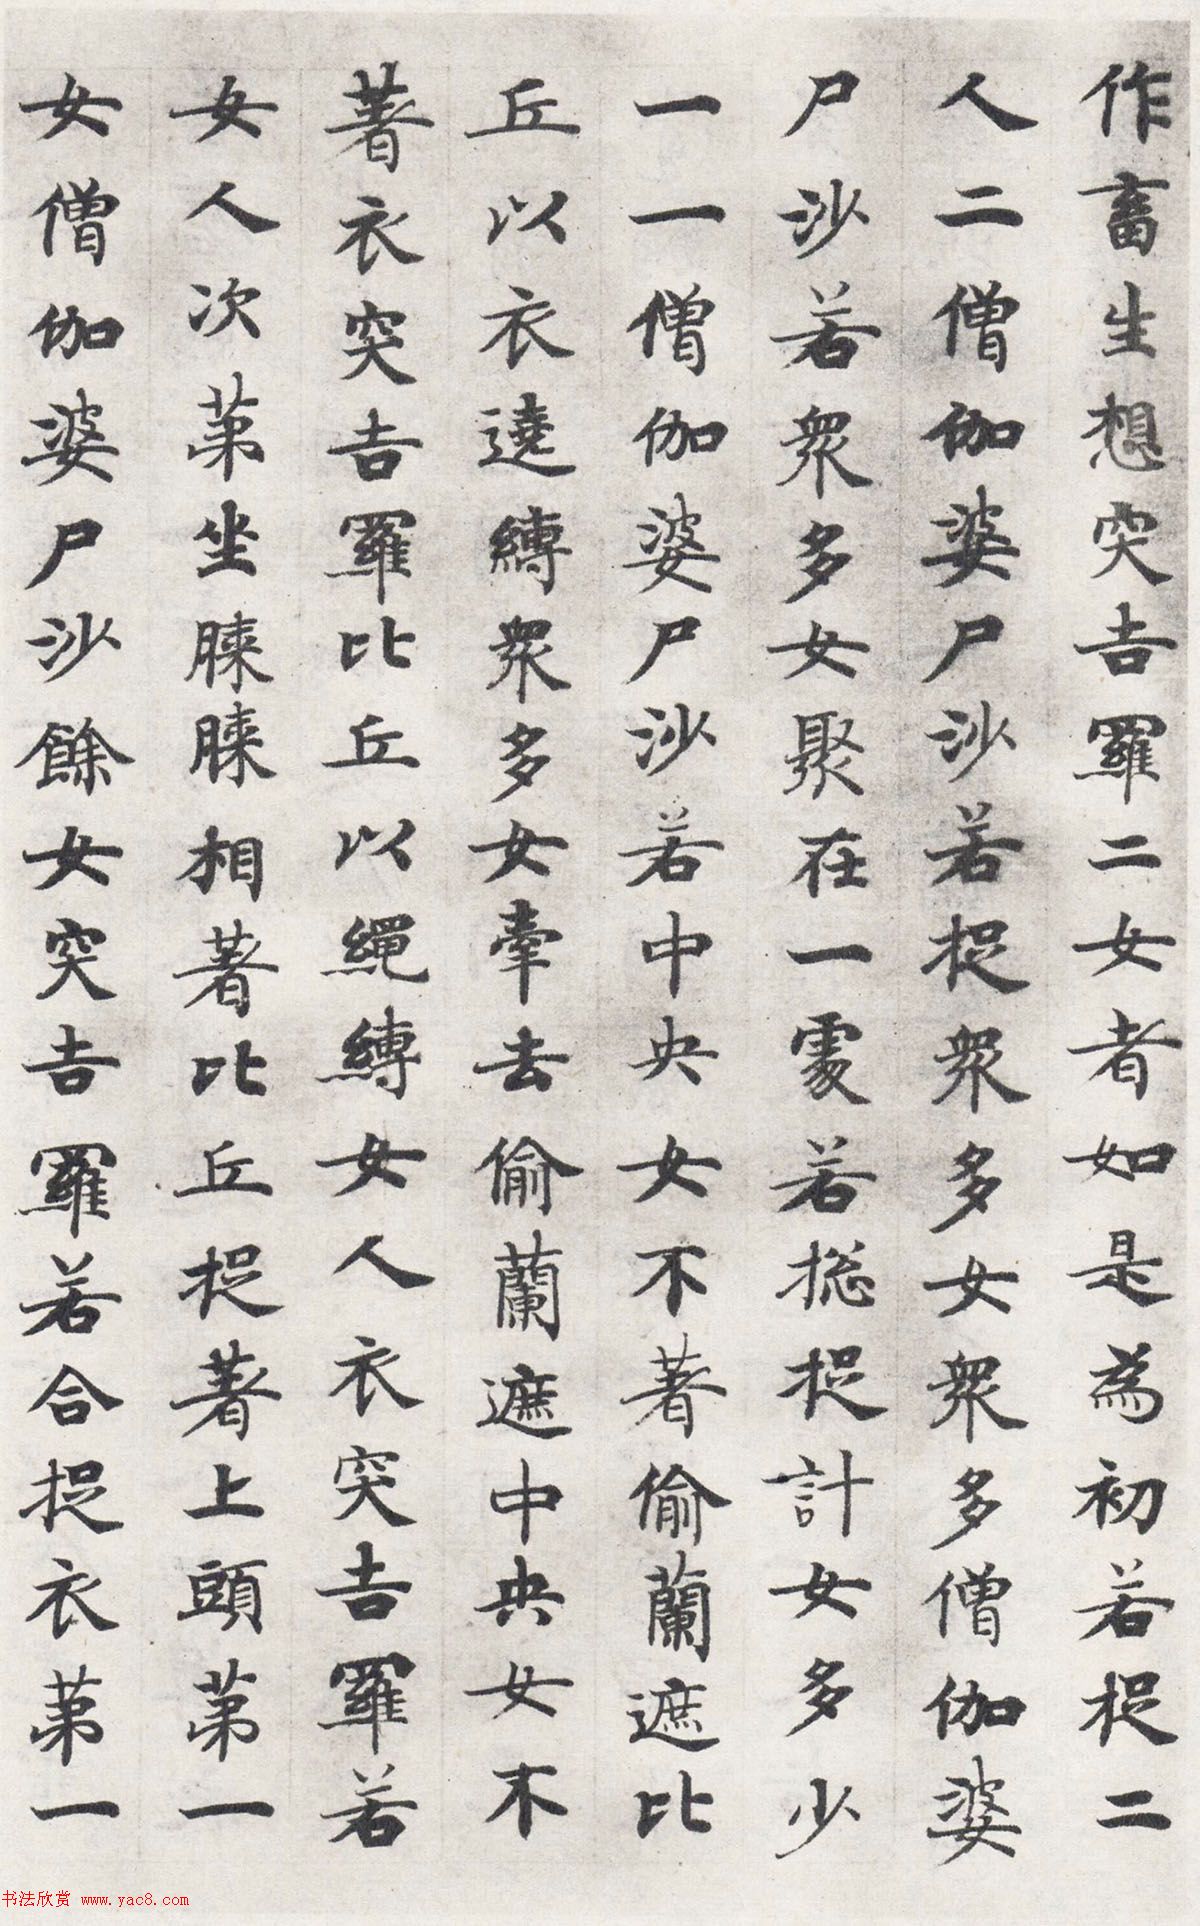 作畜生想突吉羅二女者如是為初若捉二
人二僧伽婆尸沙若捉眾多女眾多僧伽婆
尸沙若眾多女聚在一處若揔捉計女多少
一一僧伽婆尸沙若中央女不著偷蘭遮比
丘以衣遶縛眾多女牽去偷蘭遮中央女不
著衣突吉羅比丘以繩縛女人衣突吉羅若
女人次苐坐膝膝相著比丘捉著上頭苐一
女僧伽婆尸沙餘女突吉羅若合捉衣苐一
书法欣赏 www.yac8.com